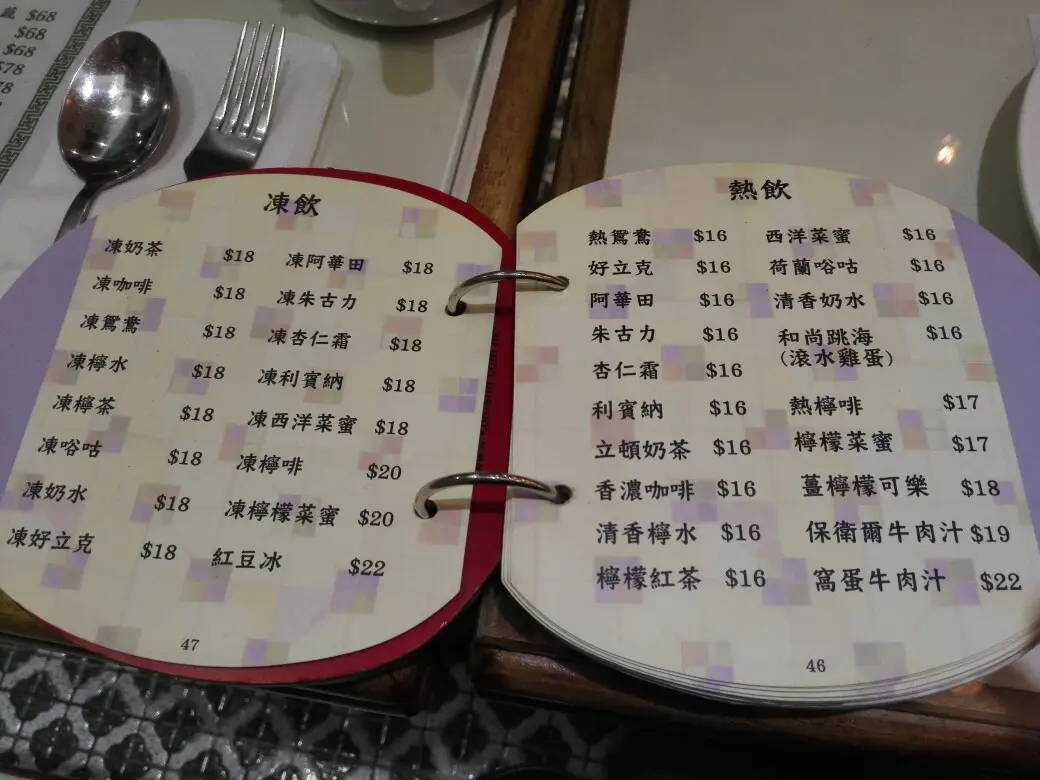 $68
$68
$68
$78
凍飲
凍奶茶 $18 凍阿華田 $18
凍咖啡 $18 凍朱古力 $18
凍鴛鴦 $18 凍杏仁霜 $18
凍檸水 $18 凍利賓納 $18
凍檸茶 $18 凍西洋菜蜜 $18
凍唂咕 $18 凍檸啡 $20
凍奶水 $18 凍檸檬菜蜜 $20
凍好立克 $18 紅豆冰 $22
47
熱飲
熱鴛鴦 $16 西洋菜蜜 $16
好立克 $16 荷蘭唂咕 $16
阿華田 $16 清香奶水 $16
朱古力 $16 和尚跳海 $16
(滾水雞蛋)
杏仁霜 $16
利賓納 $16 熱檸啡 $17
立頓奶茶 $16 檸檬菜蜜 $17
香濃咖啡 $16 薑檸檬可樂 $18
清香檸水 $16 保衛爾牛肉汁 $19
檸檬紅茶 $16 窩蛋牛肉汁 $22
46